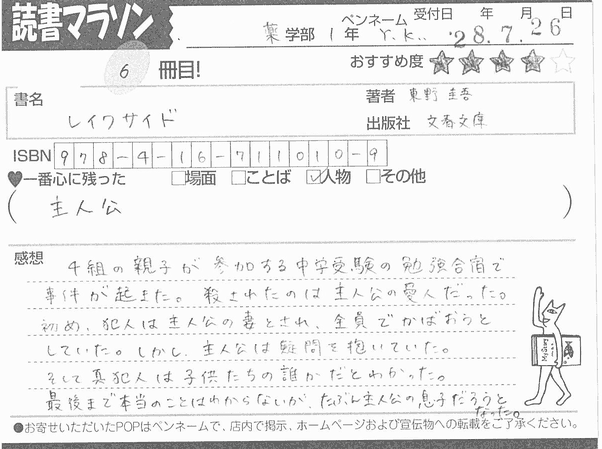 読書マラソン
薬学部 1年 ペンネーム Y.K. 受付日 '28年7月26日
6冊目!
おすすめ度 ★★★★☆
書名 レイクサイド
著者 東野圭吾
出版社 文春文庫
ISBN 978-4-16-711010-9
♥一番心に残った □場面 □ことば ☑人物 □その他
(主人公)
感想
4組の親子が参加する中学受験の勉強合宿で
事件が起きた。殺されたのは主人公の愛人だった。
初め、犯人は主人公の妻とされ、全員でかばおうと
していた。しかし、主人公は疑問を抱いていた。
そして真犯人は子供たちの誰かだとわかった。
最後まで本当のことはわからないが、たぶん主人公の息子だろうと
なった。
●お寄せいただいたPOPはペンネームで、店内で掲示、ホームページおよび宣伝物への転載をご了承ください。